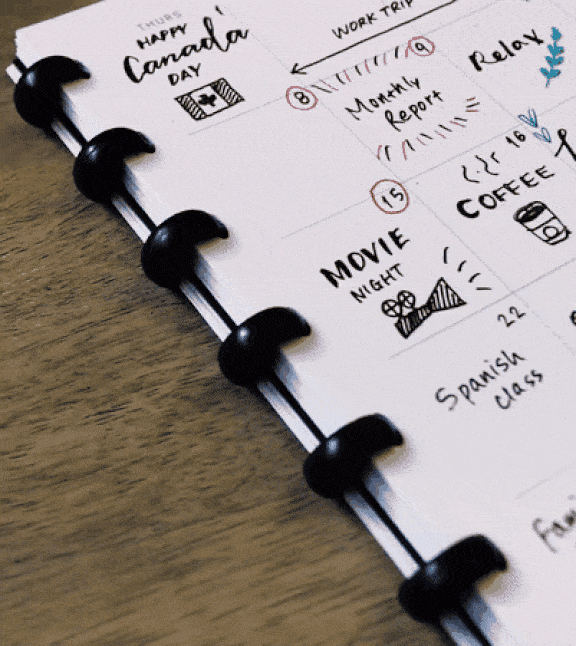 THURS
1
HAPPY
Canada
DAY
WORK TRIP
8
9
Monthly
Report
Relax
15
MOVIE
NIGHT
16
COFFEE
22
Spanish
class
Fami